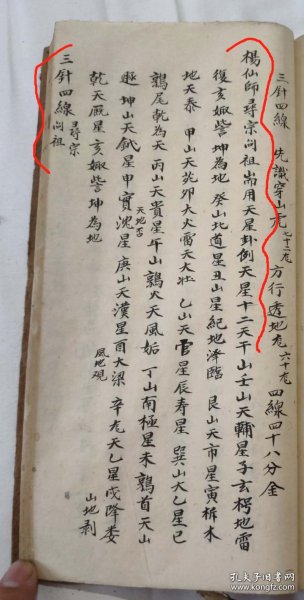 三針四線 先識穿山虎七十二龙 方行透地龙六十龙 四線四十八分金
楊仙師尋宗问祖 耑用天星卦例 天星十二天干山 壬山天輔星 子玄枵 地雷
復 亥娵訾 坤為地 癸山北道星 丑山星紀 地泽臨 艮山天市星 寅析木
地天泰 甲山天苑 卯大火 雷天大壯 乙山天官星 辰寿星 巽山太乙星 巳
鶉尾 乾為天 丙山天貴星 午山鶉火 天風姤 丁山南極星 未鶉首 天山
遯 坤山天鉞星 申實沈星 天地否 庚山天漢星 酉大梁 風地观 辛龙天乙星 戌降娄 山地剥
乾天厩星 亥娵訾 坤為地
三針四線 尋宗问祖
孔夫子旧书网